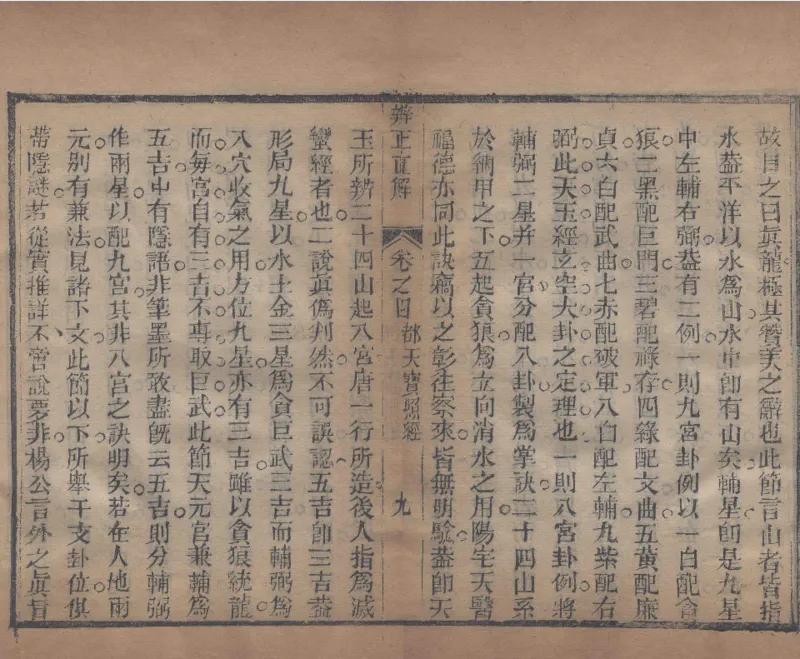 故目之曰眞龍極其贊美之辭也此節言山者皆指
水葢平洋以水爲山水中卽有山矣輔星卽是九星
中左輔右弼葢有二例一則九宮卦例以一白配貪
狼二黑配巨門三碧配祿存四綠配文曲五黃配廉
貞六白配武曲七赤配破軍八白配左輔九紫配右
弼此天玉經立空大卦之定理也一則八宮卦例將
輔弼二星并一宮分配八卦製爲掌訣二十四山系
於納甲之下五起貪狼爲立向消水之用陽宅天醫
福德亦同此訣竊以之彰往察來皆無明驗葢卽天
辨正直解
卷之四
都天寶照經
九
玉所辨二十四山起八宮唐一行所造後人指爲滅
蠻經者也二說眞僞判然不可誤認五吉卽三吉葢
形局九星以水土金三星爲貪巨武三吉而輔弼爲
入穴收氣之用方位九星亦有三吉雖以貪狼統龍
而每宮自有三吉不專取巨武此節天元宮兼輔爲
五吉中有隱語非筆墨所敢盡旣云五吉則分輔弼
作兩星以配九宮其非八宮之訣明矣若在人地兩
元別有兼法見諸下文此節以下所舉干支卦位俱
帶隱謎若從實推詳不啻說夢非楊公言外之眞旨